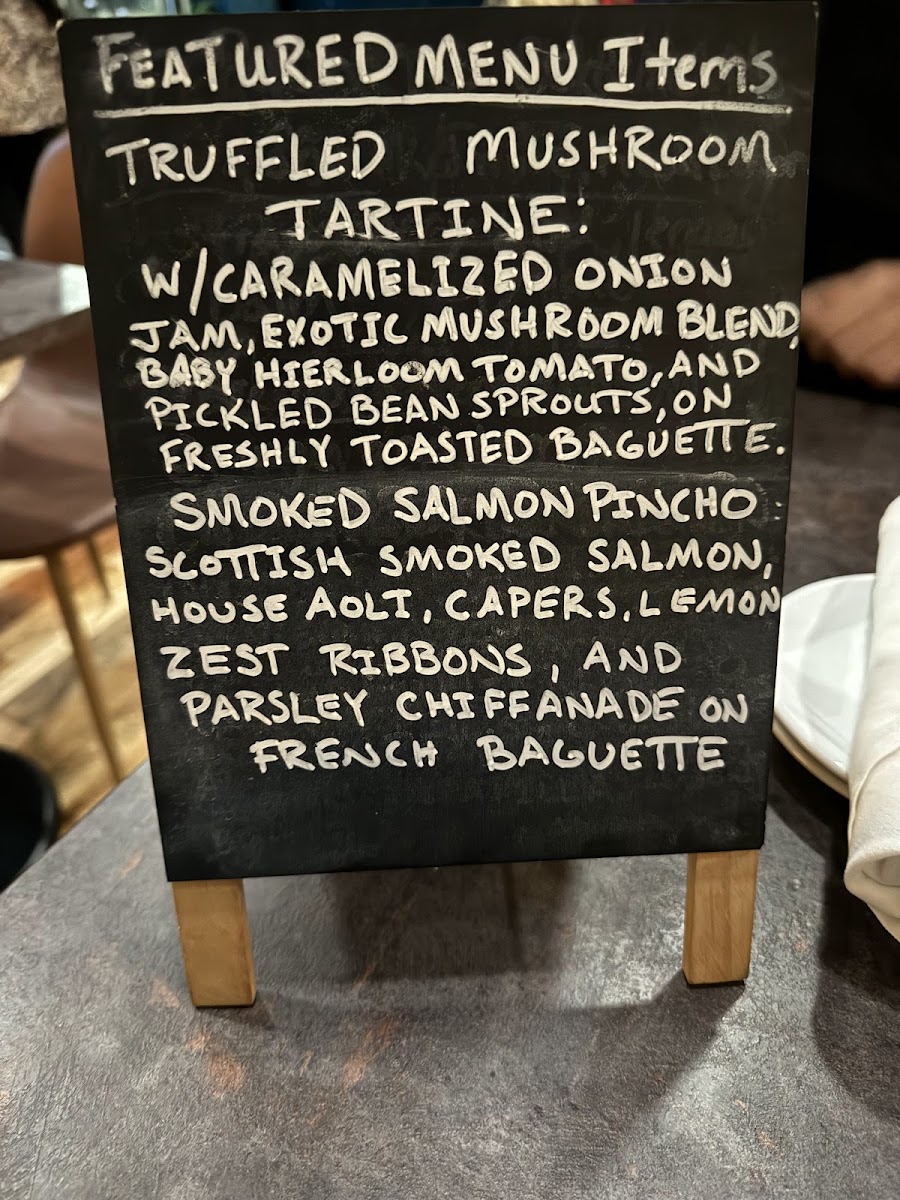 FEATURED MENU Items
TRUFFLED MUSHROOM
TARTINE:
W/CARAMELIZED ONION
JAM, EXOTIC MUSHROOM BLEND,
BABY HIERLOOM TOMATO, AND
PICKLED BEAN SPROUTS, ON
FRESHLY TOASTED BAGUETTE.
SMOKED SALMON PINCHO
SCOTTISH SMOKED SALMON,
HOUSE AOLI, CAPERS, LEMON
ZEST RIBBONS, AND
PARSLEY CHIFFANADE ON
FRENCH BAGUETTE